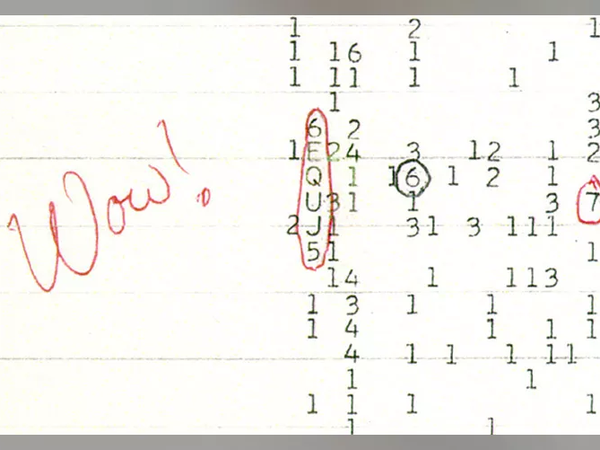 Wow!
1 2 1
1 16 1 1
1 11 1 1
1 3
6 2 3
1E24 3 12 1 2
Q 1 16 1 2 1
U31 1 3 7
2J1 31 3 111
51 1
14 1 113
1 3 1 1 1
1 4 1 1 1
4 1 1 1 11
1 1
1 1 1 1
1 1